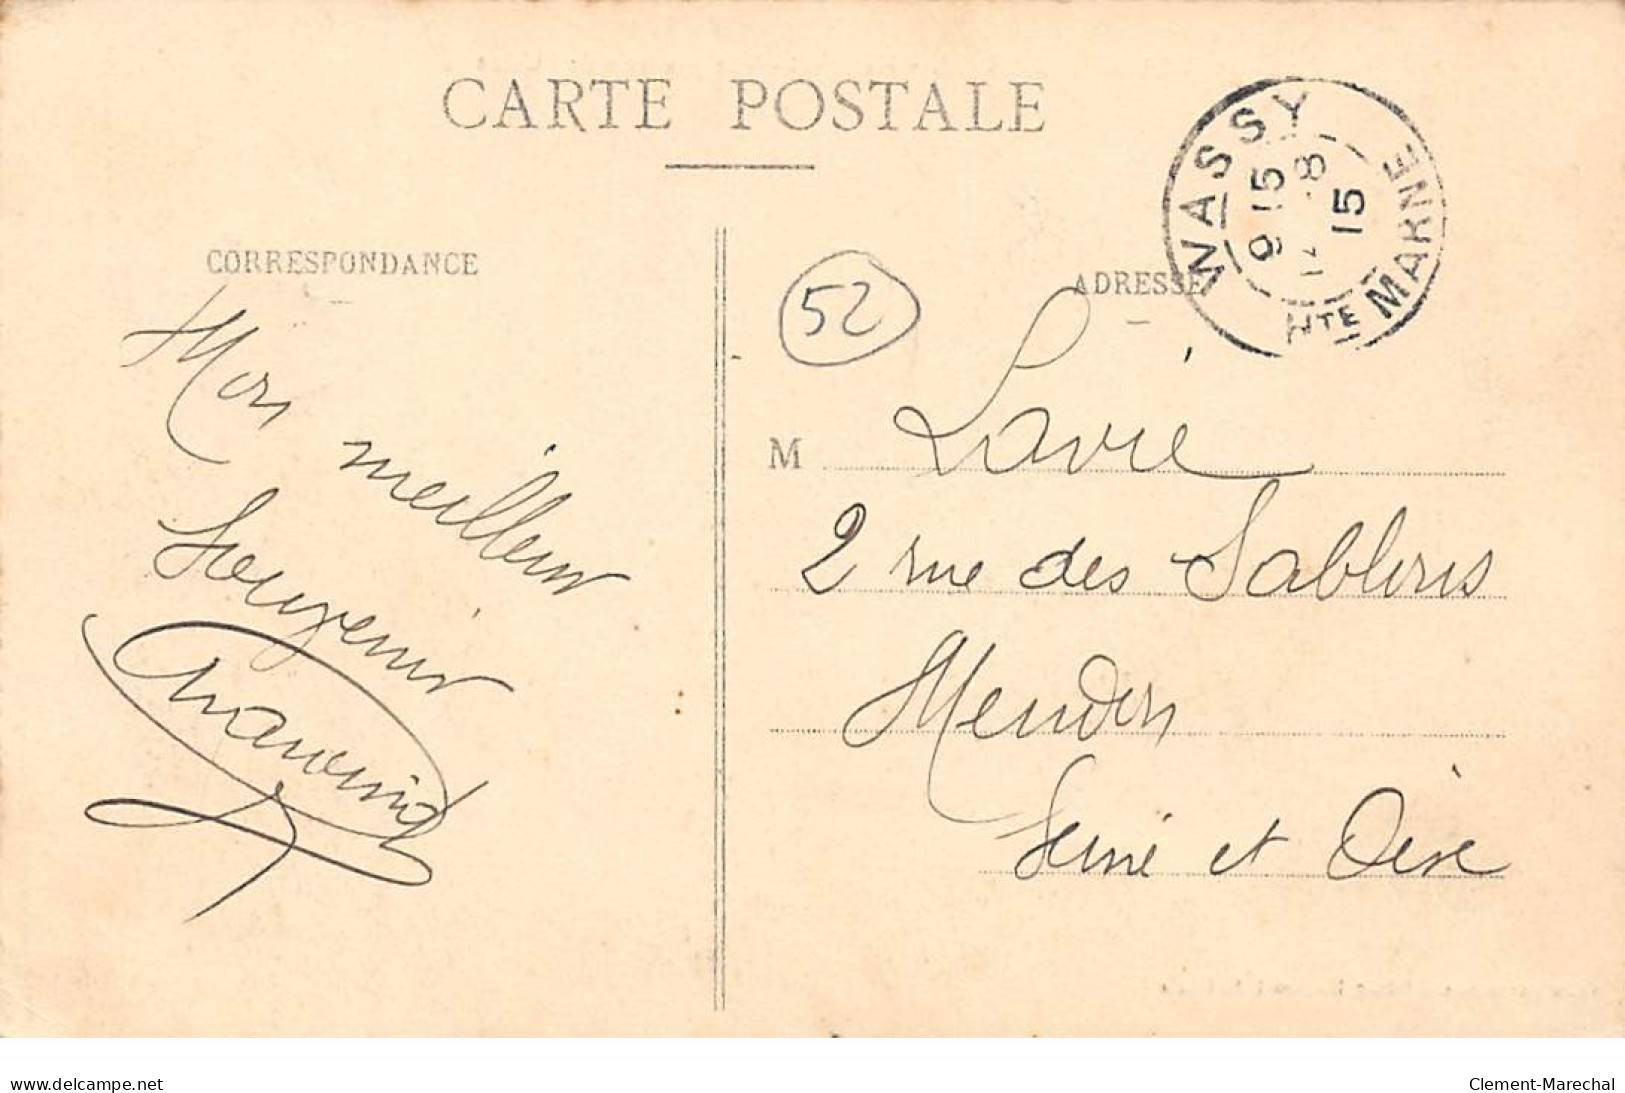 CARTE POSTALE
WASSY
9 15
8
15
HTE MARNE
CORRESPONDANCE
ADRESSE
52
Mon
meilleur
Souvenir
M Lavié
2 rue des Sablons
Meudon
Seine et Oise
www.delcampe.net
Clement-Marechal